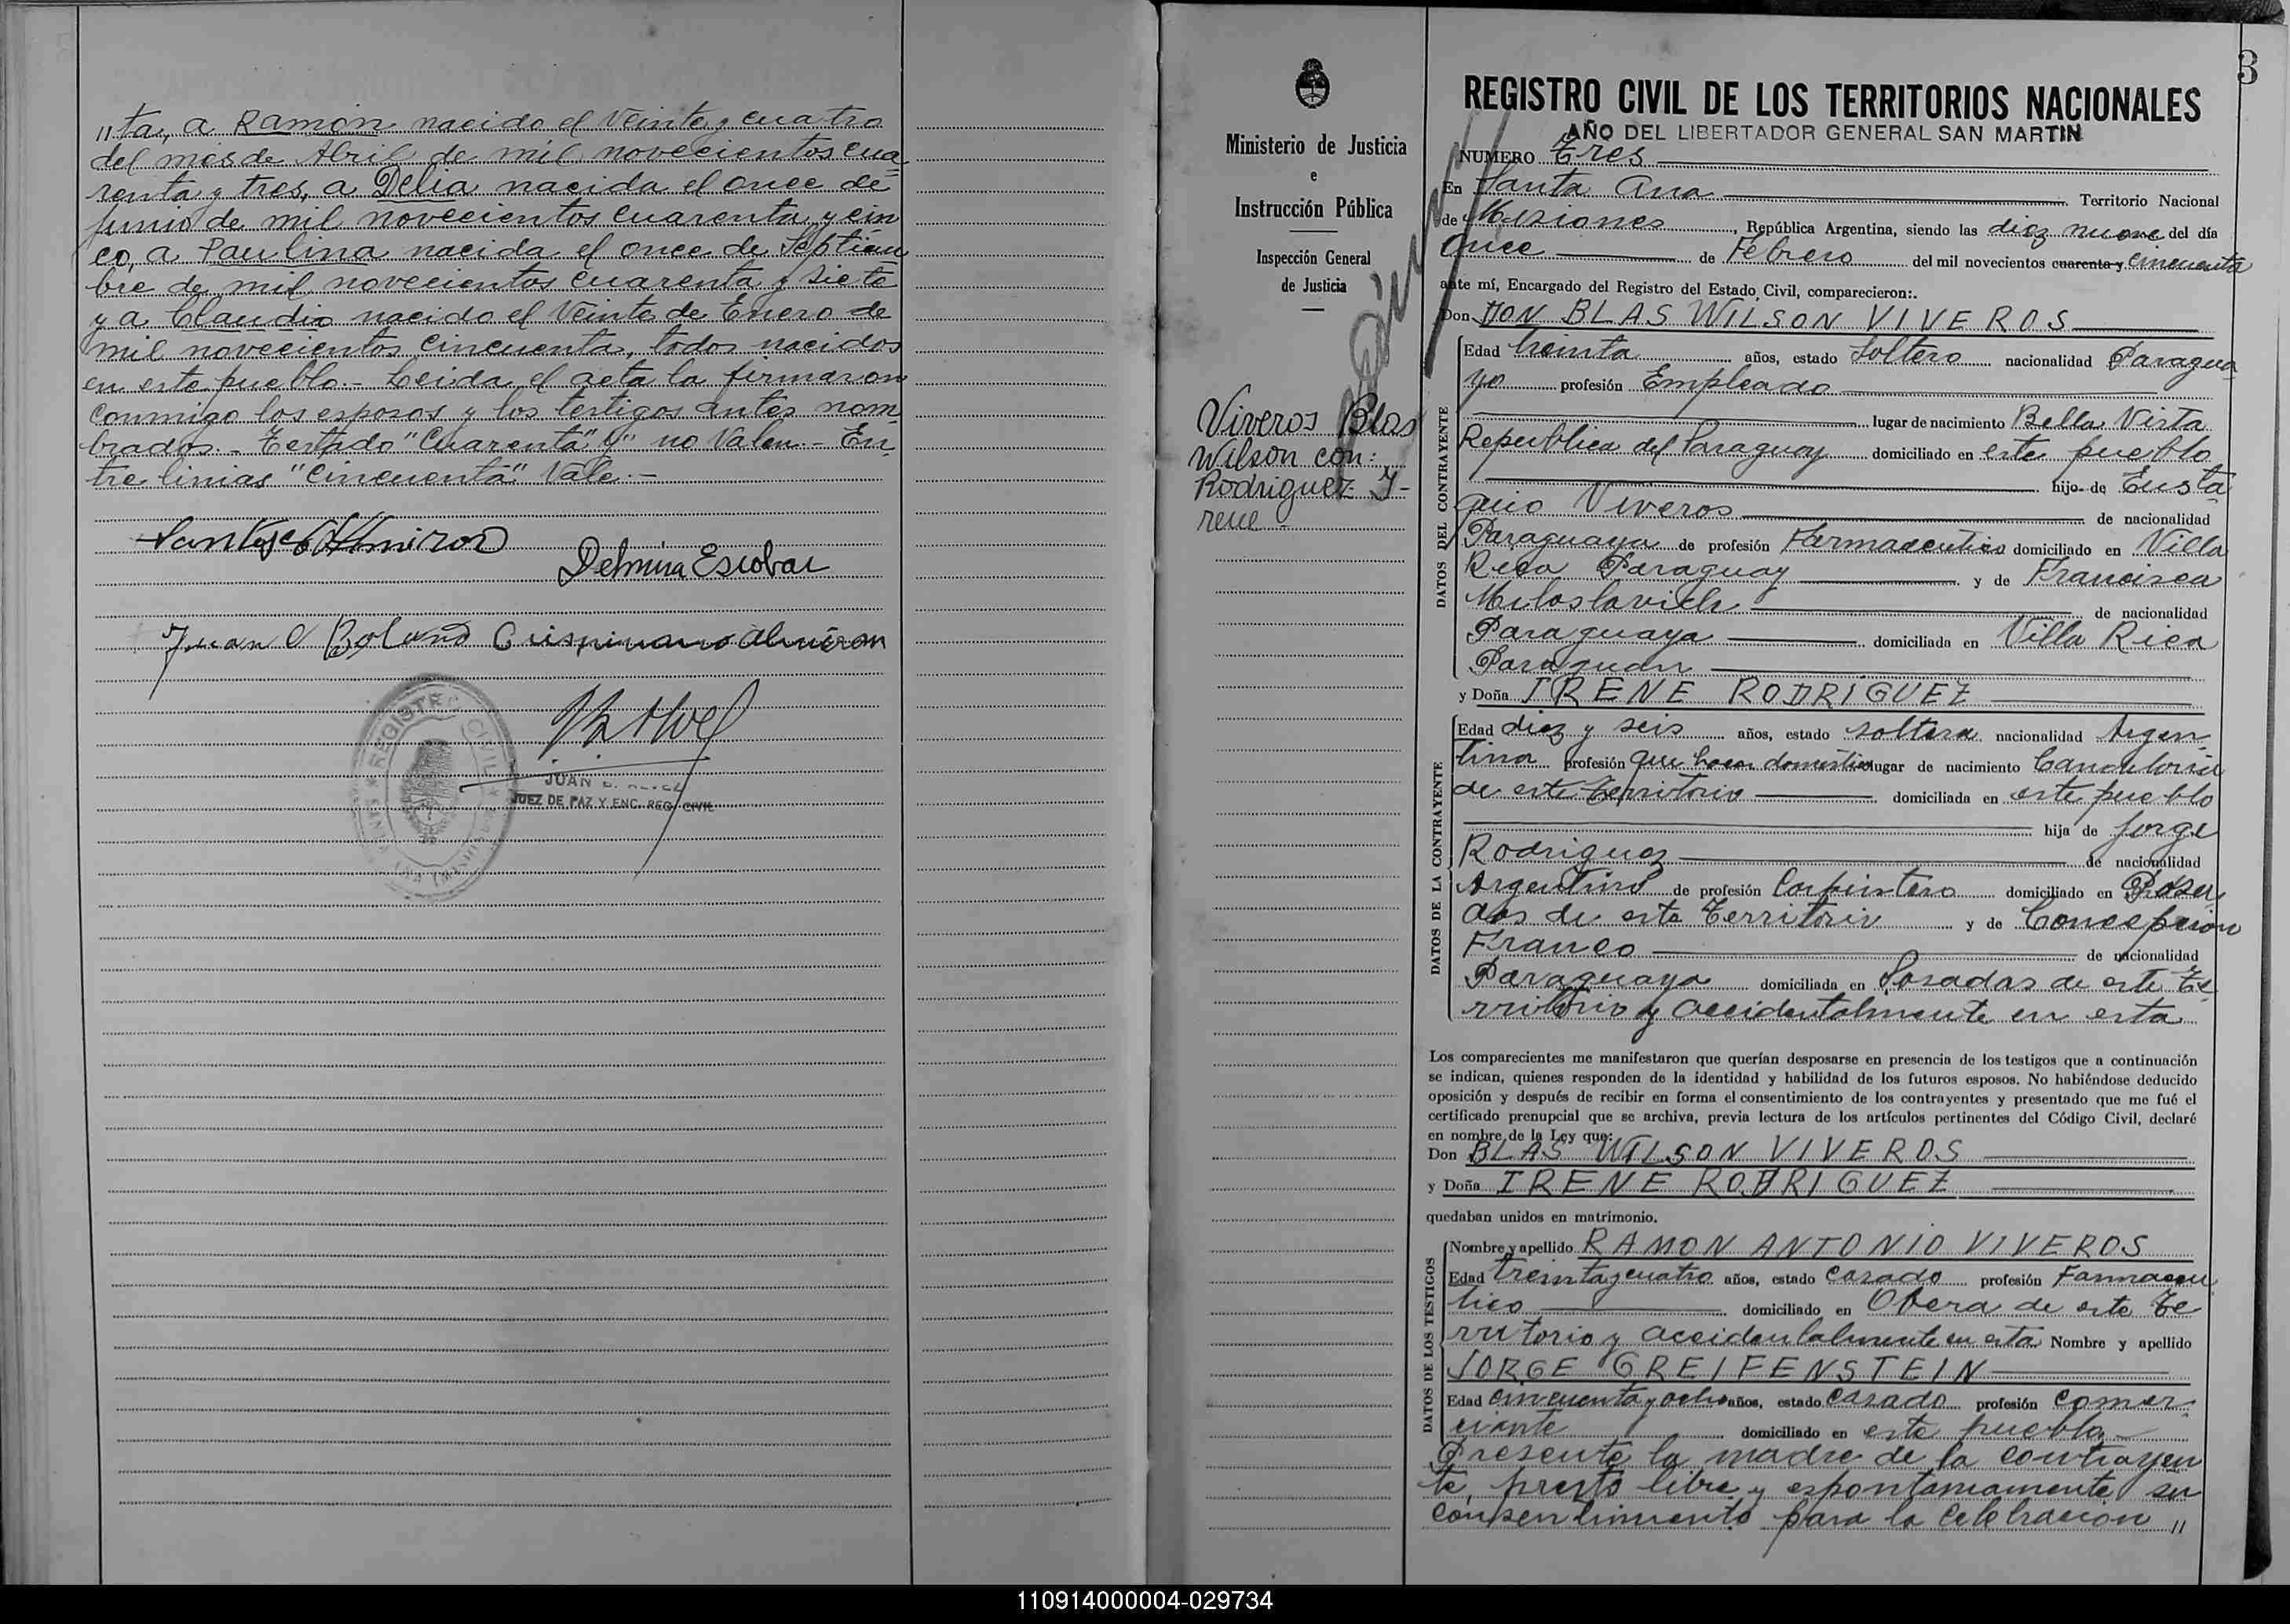 "ta, a Ramón nacido el Veinte y cuatro
del mes de Abril de mil novecientos cua=
renta y tres, a Delia nacida el once de
junio de mil novecientos cuarenta y cin
co, a Paulina nacida el once de Septiem
bre de mil novecientos cuarenta y siete
y a Claudio nacido el Veinte de Enero de
mil novecientos cincuenta, todos nacidos
en este pueblo.- Leida el acta la firmaron
conmigo los esposos y los testigos antes nom
brados.- Testado "Cuarenta" y" no Valen.- En
tre linias "Cincuenta" Vale.-
Delmira Escobar
Juan
REGISTRO CIVIL
JUAN
JUEZ DE PAZ Y ENC. REG. CIVIL
3
Ministerio de Justicia
e
Instrucción Pública
Inspección General
de Justicia
Viveros Blas
Wilson con:
Rodriguez I-
rene -
REGISTRO CIVIL DE LOS TERRITORIOS NACIONALES
AÑO DEL LIBERTADOR GENERAL SAN MARTIN
NUMERO Tres
En Santa Ana Territorio Nacional
de Misiones, República Argentina, siendo las diez nueve del día
Once de Febrero del mil novecientos cuarenta y Cincuenta
ante mí, Encargado del Registro del Estado Civil, comparecieron:.
Don DON BLAS WILSON VIVEROS
DATOS DEL CONTRAYENTE
Edad treinta años, estado Soltero nacionalidad Paragua
yo profesión Empleado
lugar de nacimiento Bella Vista
Republica del Paraguay domiciliado en este pueblo
hijo de Eusta
quio Viveros de nacionalidad
Paraguaya de profesión Farmaceutico domiciliado en Villa
Rica Paraguay y de Francisca
Miloslavich de nacionalidad
Paraguaya domiciliada en Villa Rica
Paraguay
y Doña IRENE RODRIGUEZ
DATOS DE LA CONTRAYENTE
Edad diez y seis años, estado soltera nacionalidad Argen
tina profesión Que hacer domestico lugar de nacimiento Candelaria
de este Territorio domiciliada en este pueblo
hija de Jorge
Rodriguez de nacionalidad
Argentino de profesión Carpintero domiciliado en Posa
das de este Territorio y de Concepcion
Franco de nacionalidad
Paraguaya domiciliada en Posadas de este Te
rritorio y accidentalmente en esta
Los comparecientes me manifestaron que querían desposarse en presencia de los testigos que a continuación
se indican, quienes responden de la identidad y habilidad de los futuros esposos. No habiéndose deducido
oposición y después de recibir en forma el consentimiento de los contrayentes y presentado que me fué el
certificado prenupcial que se archiva, previa lectura de los artículos pertinentes del Código Civil, declaré
en nombre de la Ley que:
Don BLAS WILSON VIVEROS
y Doña IRENE RODRIGUEZ
quedaban unidos en matrimonio.
DATOS DE LOS TESTIGOS
Nombre y apellido RAMON ANTONIO VIVEROS
Edad treinta y cuatro años, estado casado profesión Farmaceu
tico domiciliado en Obera de este Te
rritorio y accidentalmente en esta Nombre y apellido
JORGE GREIFENSTEIN
Edad cincuenta y ocho años, estado casado profesión comer
ciante domiciliado en este pueblo.-
Presente la madre de la contrayen
te, prestó libre y espontaniamente su
consentimiento para la celebracion "
110914000004-029734